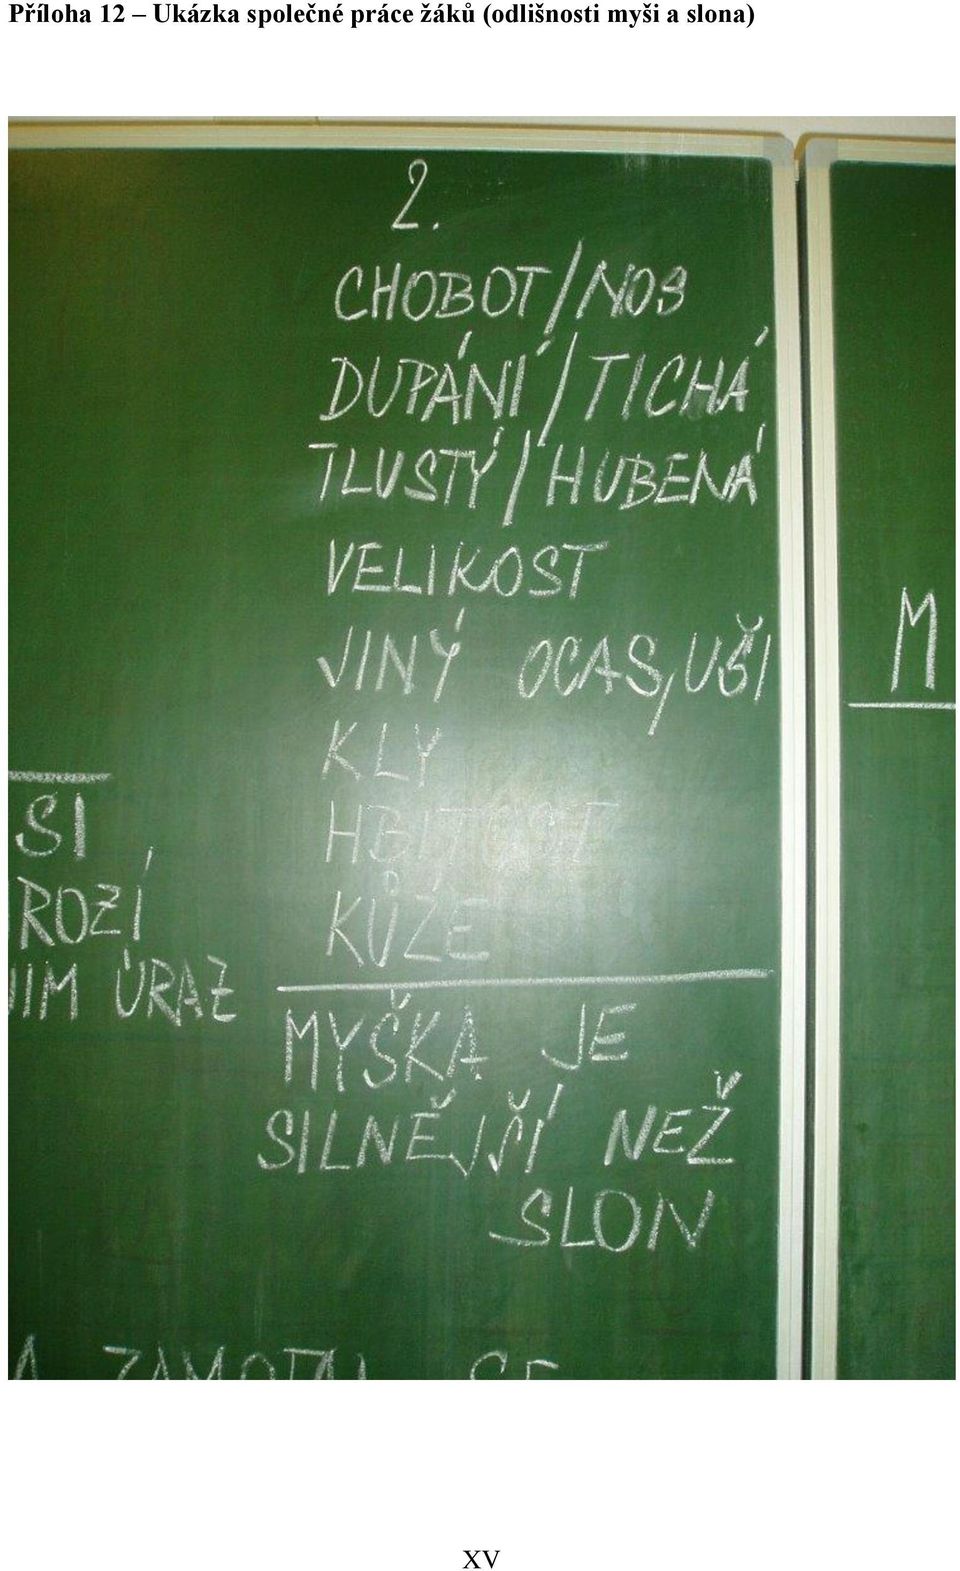 Příloha 12 – Ukázka společné práce žáků (odlišnosti myši a slona)
2.
CHOBOT/NOS
DUPÁNÍ/TICHÁ
TLUSTÝ/HUBENÁ
VELIKOST
JINÝ OCAS, UŠI
KLY
HBITOST
KŮŽE
MYŠKA JE
SILNĚJŠÍ NEŽ
SLON
SI
ROZÍ
ÚRAZ
M
ZAMOTAL SE
XV